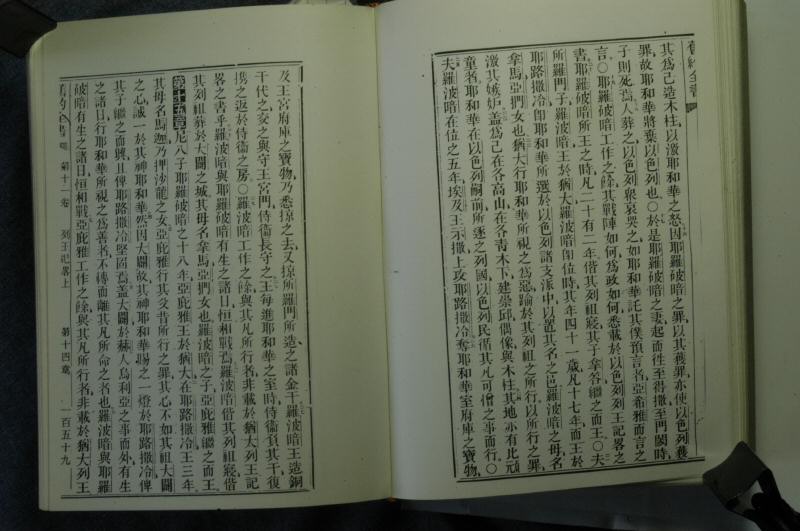 舊約全書
其爲己造木柱以激耶和華之怒因耶羅破暗之罪以其獲罪亦使以色列獲
罪故耶和華將棄以色列也○於是耶羅破暗之妻起而往至得撒至門閾時
子則死焉人葬之以色列衆哀哭之如耶和華託其僕預言者亞希雅而言之
言○耶羅破暗工作之餘其戰陣如何爲政如何悉載於以色列列王記畧之
書耶羅破暗所王之時凡二十有二年偕其列祖寢其子拿答繼之而王○夫
所羅門子羅波暗王於猶大羅波暗卽位時其年四十一歲凡十七年而王於
耶路撒冷卽耶和華所選於以色列諸支派中以置其名之邑羅波暗之母名
拿馬亞捫女也猶大行耶和華所視之爲惡踰於其列祖之所行以所行之罪
激其嫉妒蓋爲己在各高山在各青木下建崇邱偶像與木柱其地亦有比
童者耶和華在以色列嗣前所逐之列國以色列民循其凡可憎之事而行○
夫羅波暗在位之五年埃及王示撒上攻耶路撒冷奪耶和華室府庫之寶物
及王宮府庫之寶物乃悉掠之去又掠所羅門所造之諸金干羅波暗王造銅
干代之交之與守王宮門侍衞長守之王每進耶和華之室時侍衞負其干復
攜之返於侍衞之房○羅波暗工作之餘與其凡所行者非載於猶大列王記
畧之書乎羅波暗與耶羅破暗有生之諸日恒相戰焉羅波暗偕其列祖寢偕
其列祖葬於大闢之城其母名拿馬亞捫女也羅波暗之子亞庇雅繼之而王
第十五章 尼八子耶羅破暗之十八年亞庇雅王於猶大在耶路撒冷王三年
其母名馬迦乃押沙龍之女亞庇雅行其父昔所行之罪其心不如其祖大闢
之心誠一於其神耶和華然因大闢故其神耶和華賜之一燈於耶路撒冷俾
其子繼之而興且俾耶路撒冷堅固焉蓋大闢於赫人烏利亞之事而外有生
之諸日行耶和華所視之爲善者不轉而離其凡所命之者也羅波暗與耶羅
破暗有生之諸日恒相戰亞庇雅工作之餘與其凡所行者非載於猶大列王
舊約全書 第十一卷 列王記畧上 第十四章 一百五十九